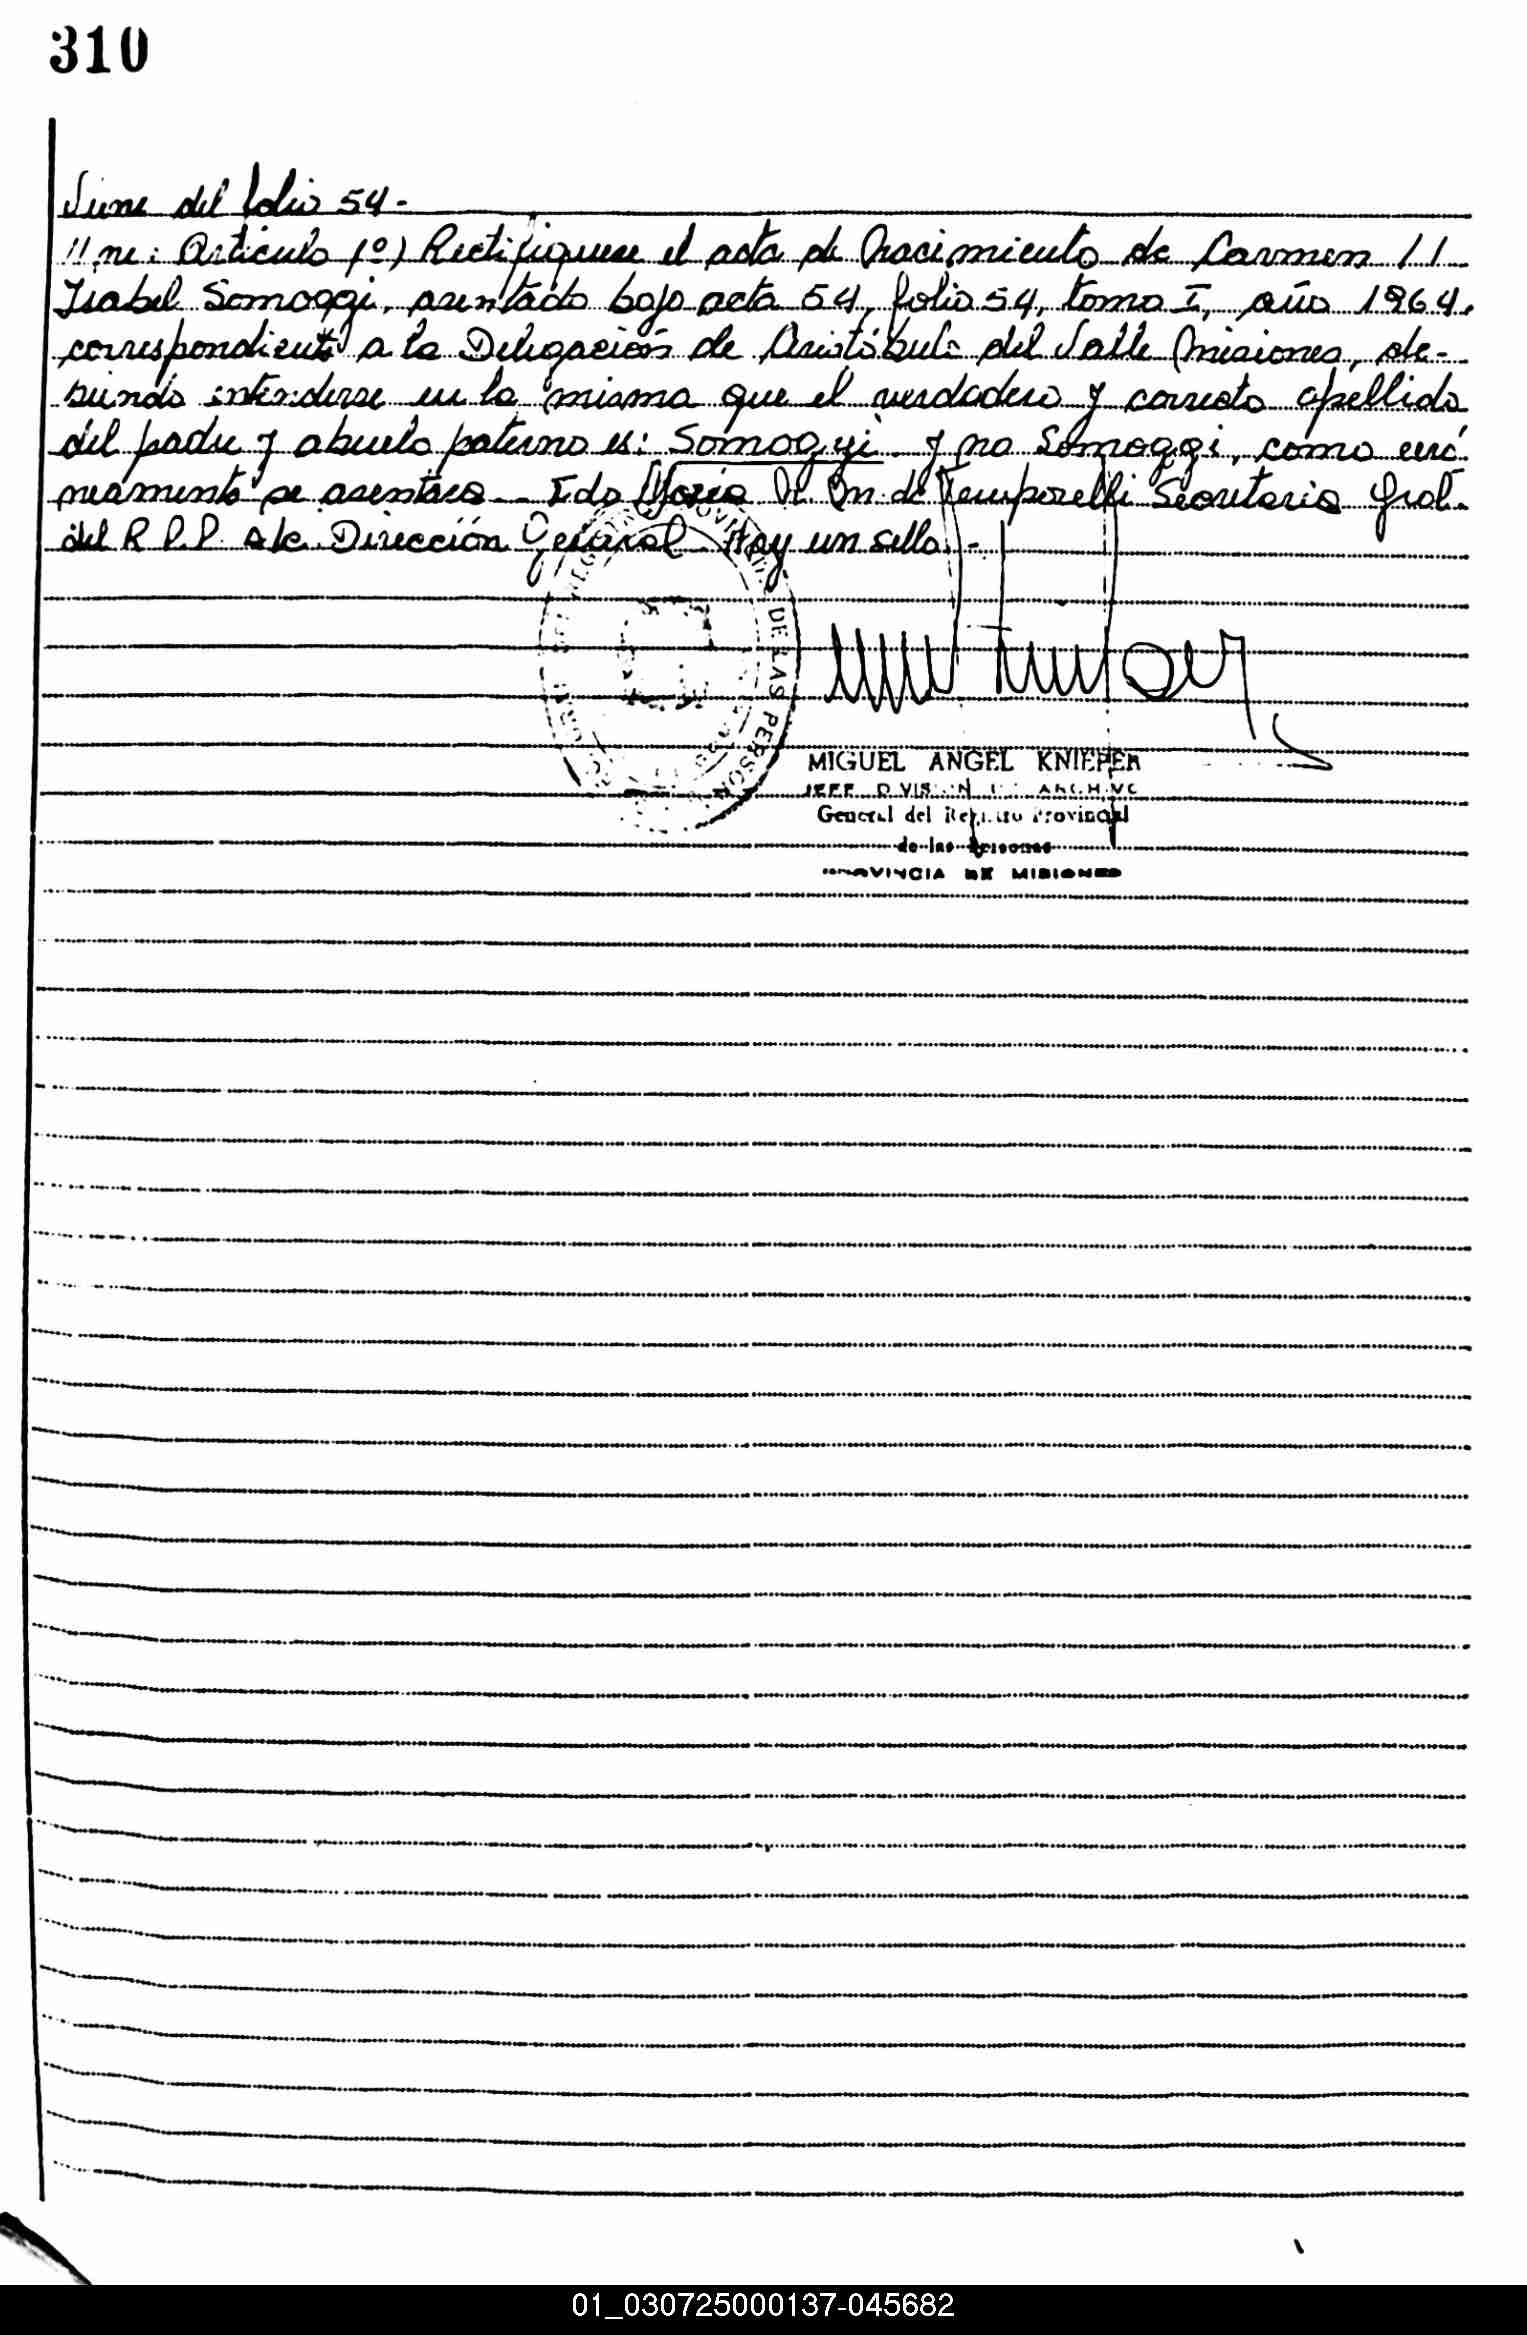 310
Viene del folio 54.-
//ne: Artículo 1º) Rectifíquese el acta de Nacimiento de Carmen //
Isabel Somoggi, asentado bajo acta 54, folio 54, tomo I, año 1964,
correspondiente a la Delegación de Aristóbulo del Valle Misiones, de-
biendo entenderse en la misma que el verdadero y correcto apellido
del padre y abuelo paterno es: Somogyi y no Somoggi, como erró
neamente se asentara.- Fdo María de Temporelli Secretaria Gral.
del R.P.P. a/c. Dirección General. Hay un sello.-
DE LAS PERSON
MIGUEL ANGEL KNIEPER
JEFE DIVISION DE ARCHIVO
General del Registro Provincial
de las Personas
PROVINCIA DE MISIONES
01_030725000137-045682